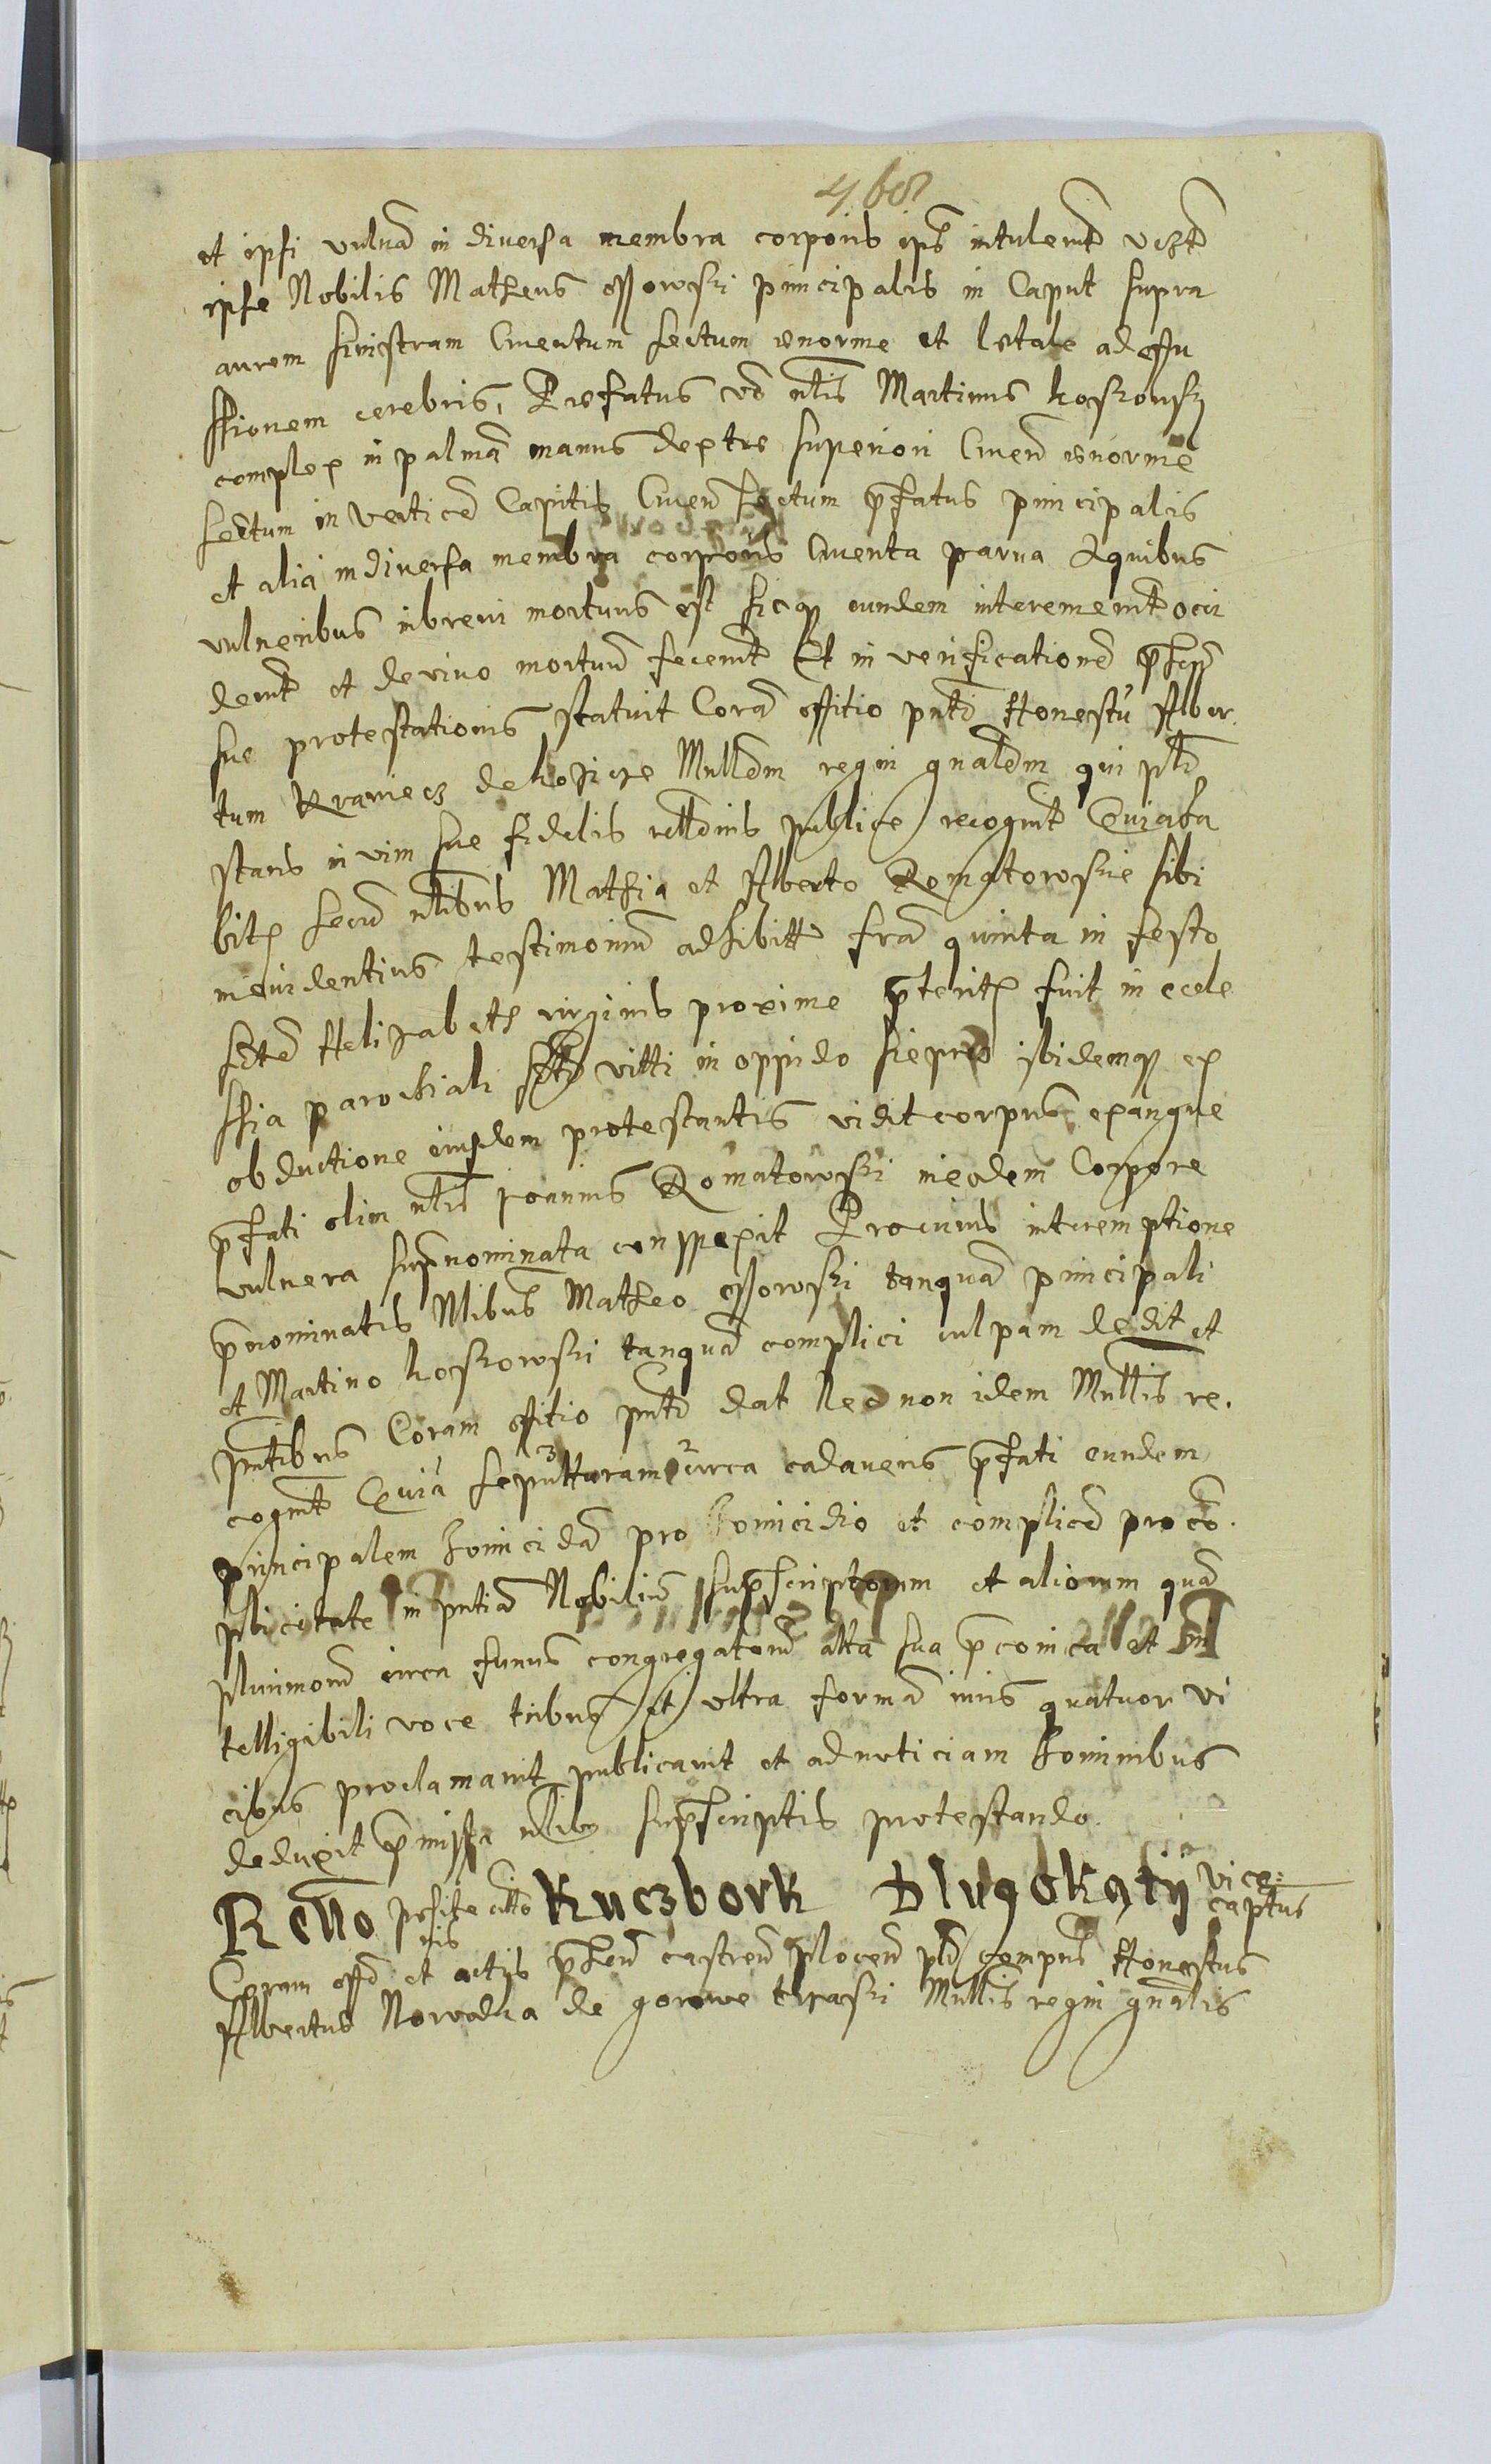 468
et ipsi vulnera in diversa membra corporis ips intulerunt vczt
ipse Nobilis Matheus ossowski principalis in Caput supra
aurem sinistram Cruentum sectum enorme et letale ad effu
ssionem cerebris, Prefatus vo nlis Martinus koskowsky
complex in palma manus dextre superiori Cruen enorme
sectum in vertice Capitis Cruen sectum pfatus principalis
et alia in diuersa membra corporis Cruenta parua Aquibus
vulneribus inbreui mortuus est sicq eundem interemerunt occi
derunt et deviuo mortuu fecerunt Et in verificatione
sue protestationis statuit Cora offitio pnti Honestu Alber
tum Krawiecz de Mnlldem regni gnaldem qui pld
stans in vim sue fidelis rellonis publice recognt Quia ha
bitz secu nlibus Mathia et Alberto Romatowskie sibi
in evidentius testimoniu adhibitt fra quinta in festo
scte Helizabeth virginis proxime pteritz fuit in eccle
sia parochiali scti vitti in oppido Sieprcz ibidemq ex
obductione eiusdem protestantis vidit corpus exangue
pfati olim nlis Joannis Romatowski ineodem Corpore
vulnera supnominata conspexit Procuius interemptione
pnominatis Nlibus Matheo ossowski tanqua principali
et Martino koskowski tanqua complici culpam dedit et
pntibus Coram offitio pnti dat Necnon idem Mnllis re.
cognt Quia sepulturam circa cadaueris pfati eundem
principalem homicida pro homicidio et complice pro co.
plicitate in pntia Nobiliu supscriptorum et aliorum qua
plurimoru circa funus congregatoru alta sua pconica et in
telligibili voce tribus et ultra forma iuris quatuor vi
cibus proclamauit publicauit et ad noticiam hominibus
deduxit pmissa nlibus supscriptis protestando.
Rello posite citto
nis
Kuczbork Dlugokąty vice:
captus
Coram offo et actis phen castren plocen pld compns Honestus
Albertus Nowadka de gorowe Mnllis regni gnalis